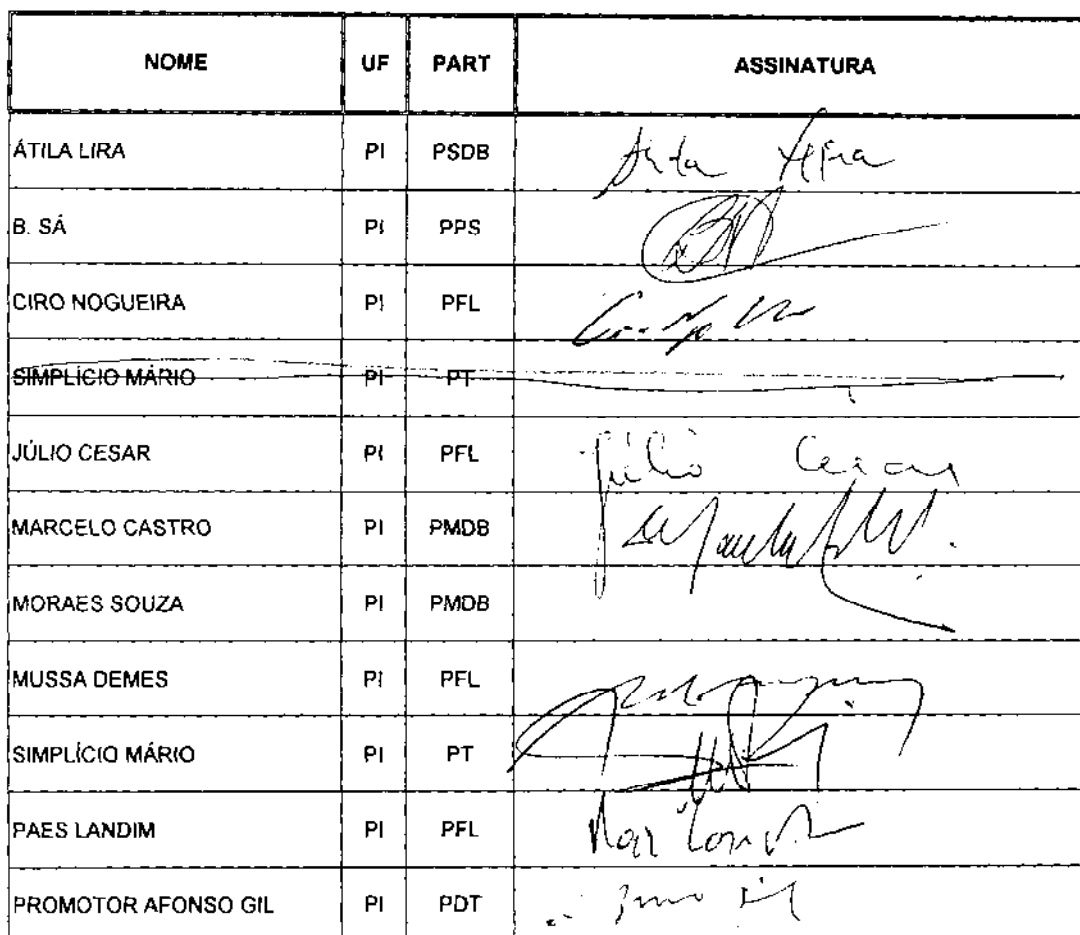 NOME UF PART ASSINATURA
ÁTILA LIRA PI PSDB Átila Lira
B. SÁ PI PPS
CIRO NOGUEIRA PI PFL
SIMPLÍCIO MÁRIO PI PT
JÚLIO CESAR PI PFL Júlio Cesar
MARCELO CASTRO PI PMDB
MORAES SOUZA PI PMDB
MUSSA DEMES PI PFL
SIMPLÍCIO MÁRIO PI PT
PAES LANDIM PI PFL
PROMOTOR AFONSO GIL PI PDT